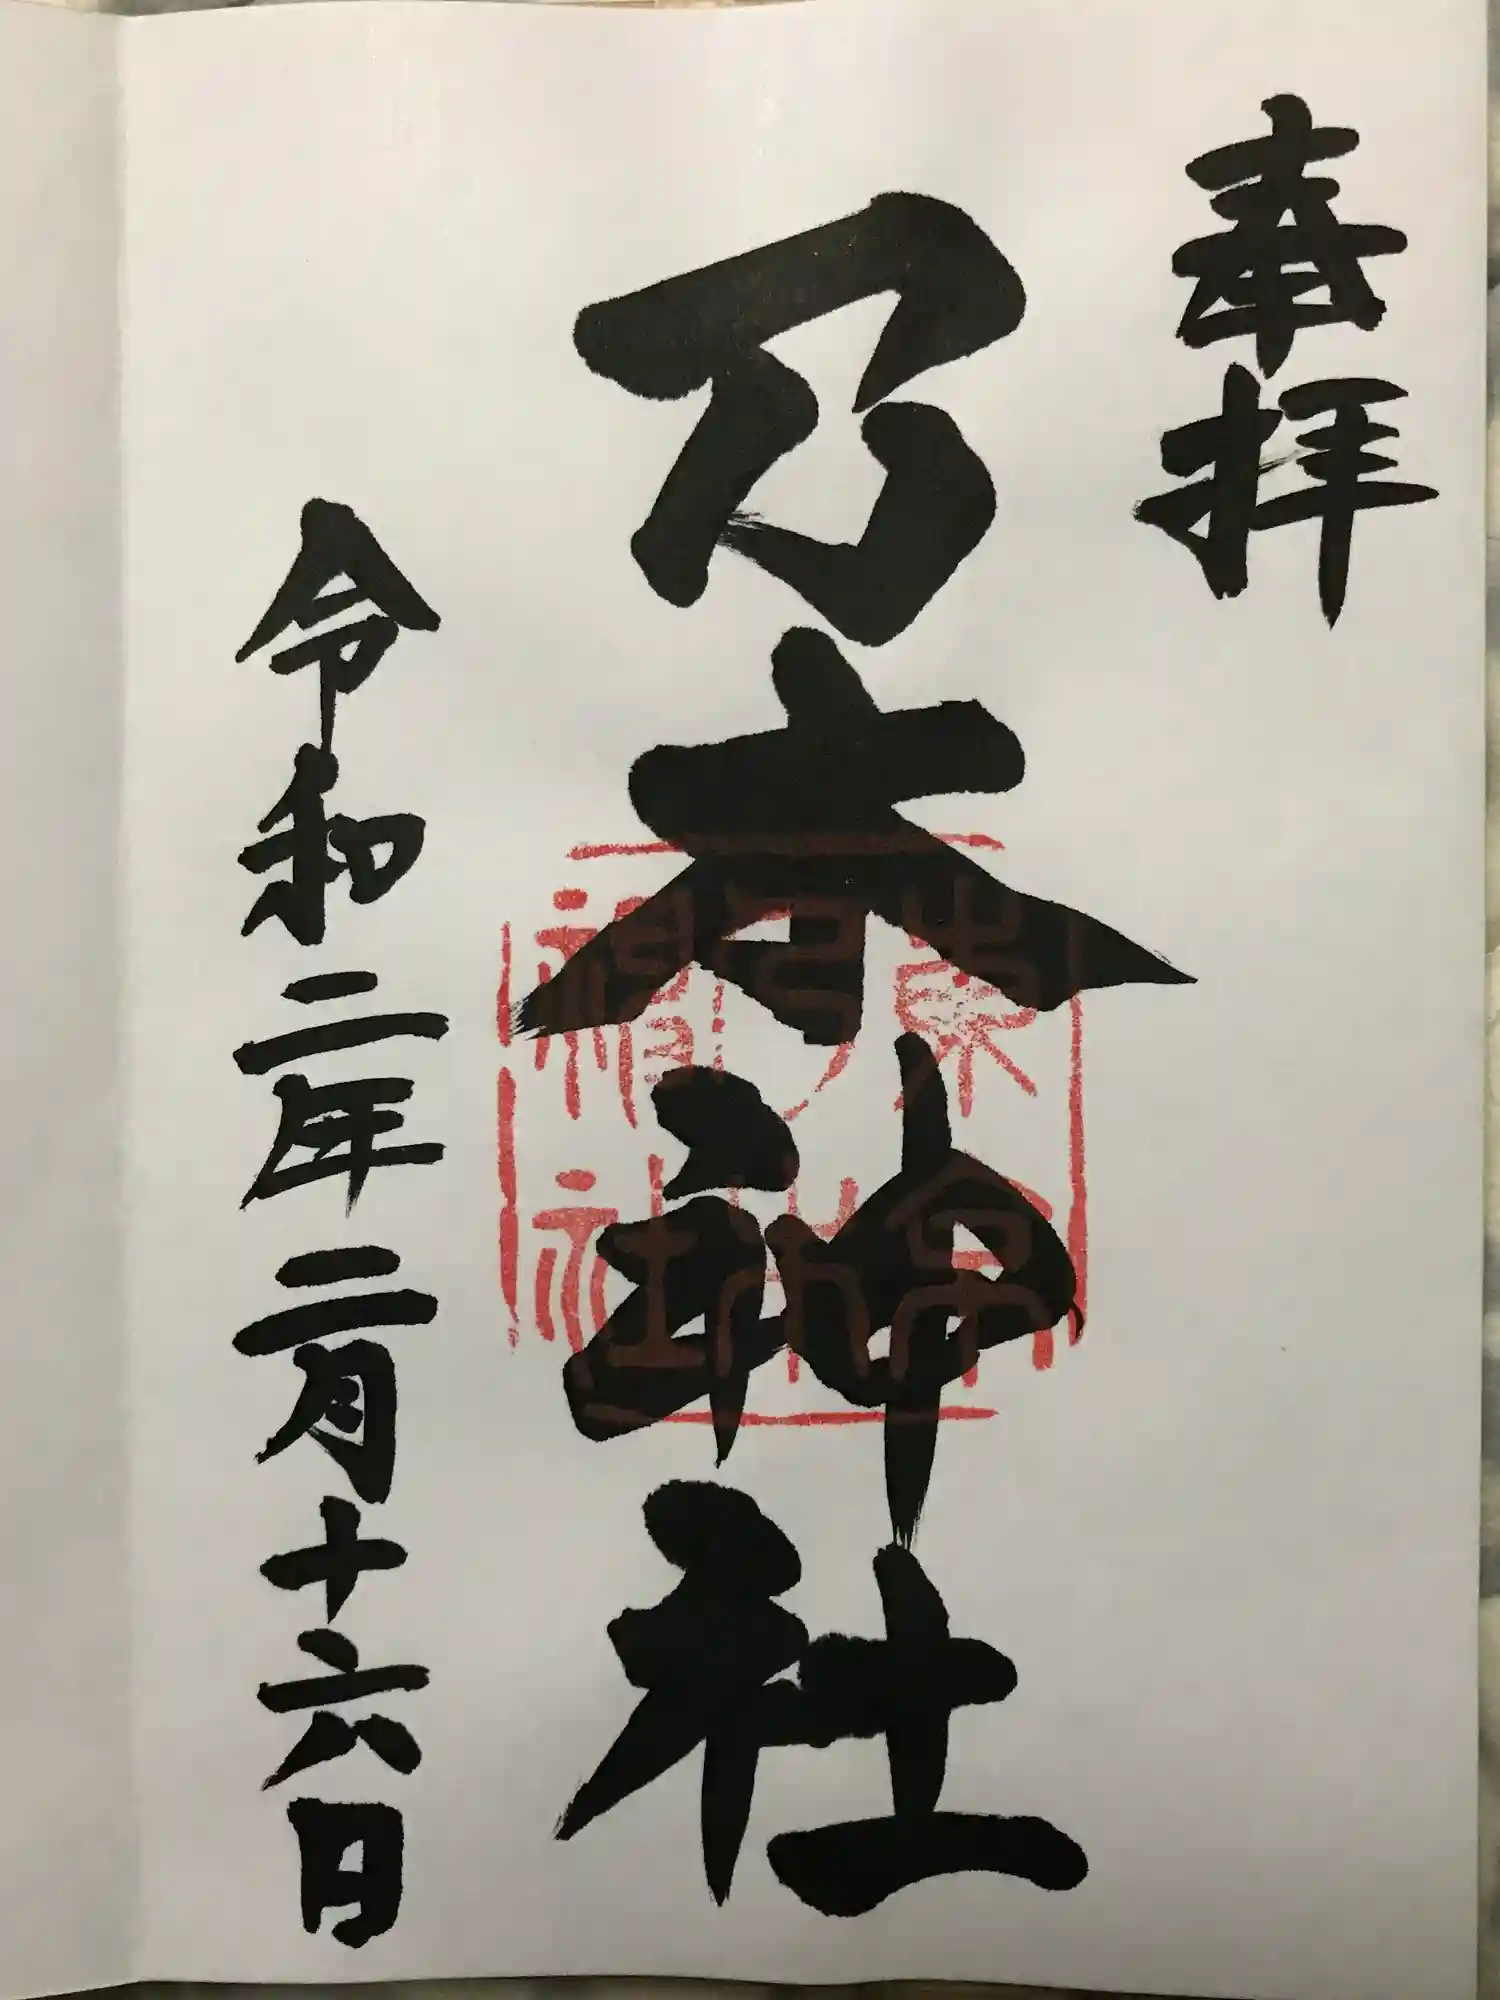 奉拝
乃木神社
東京
乃木
神社
令和二年二月十六日